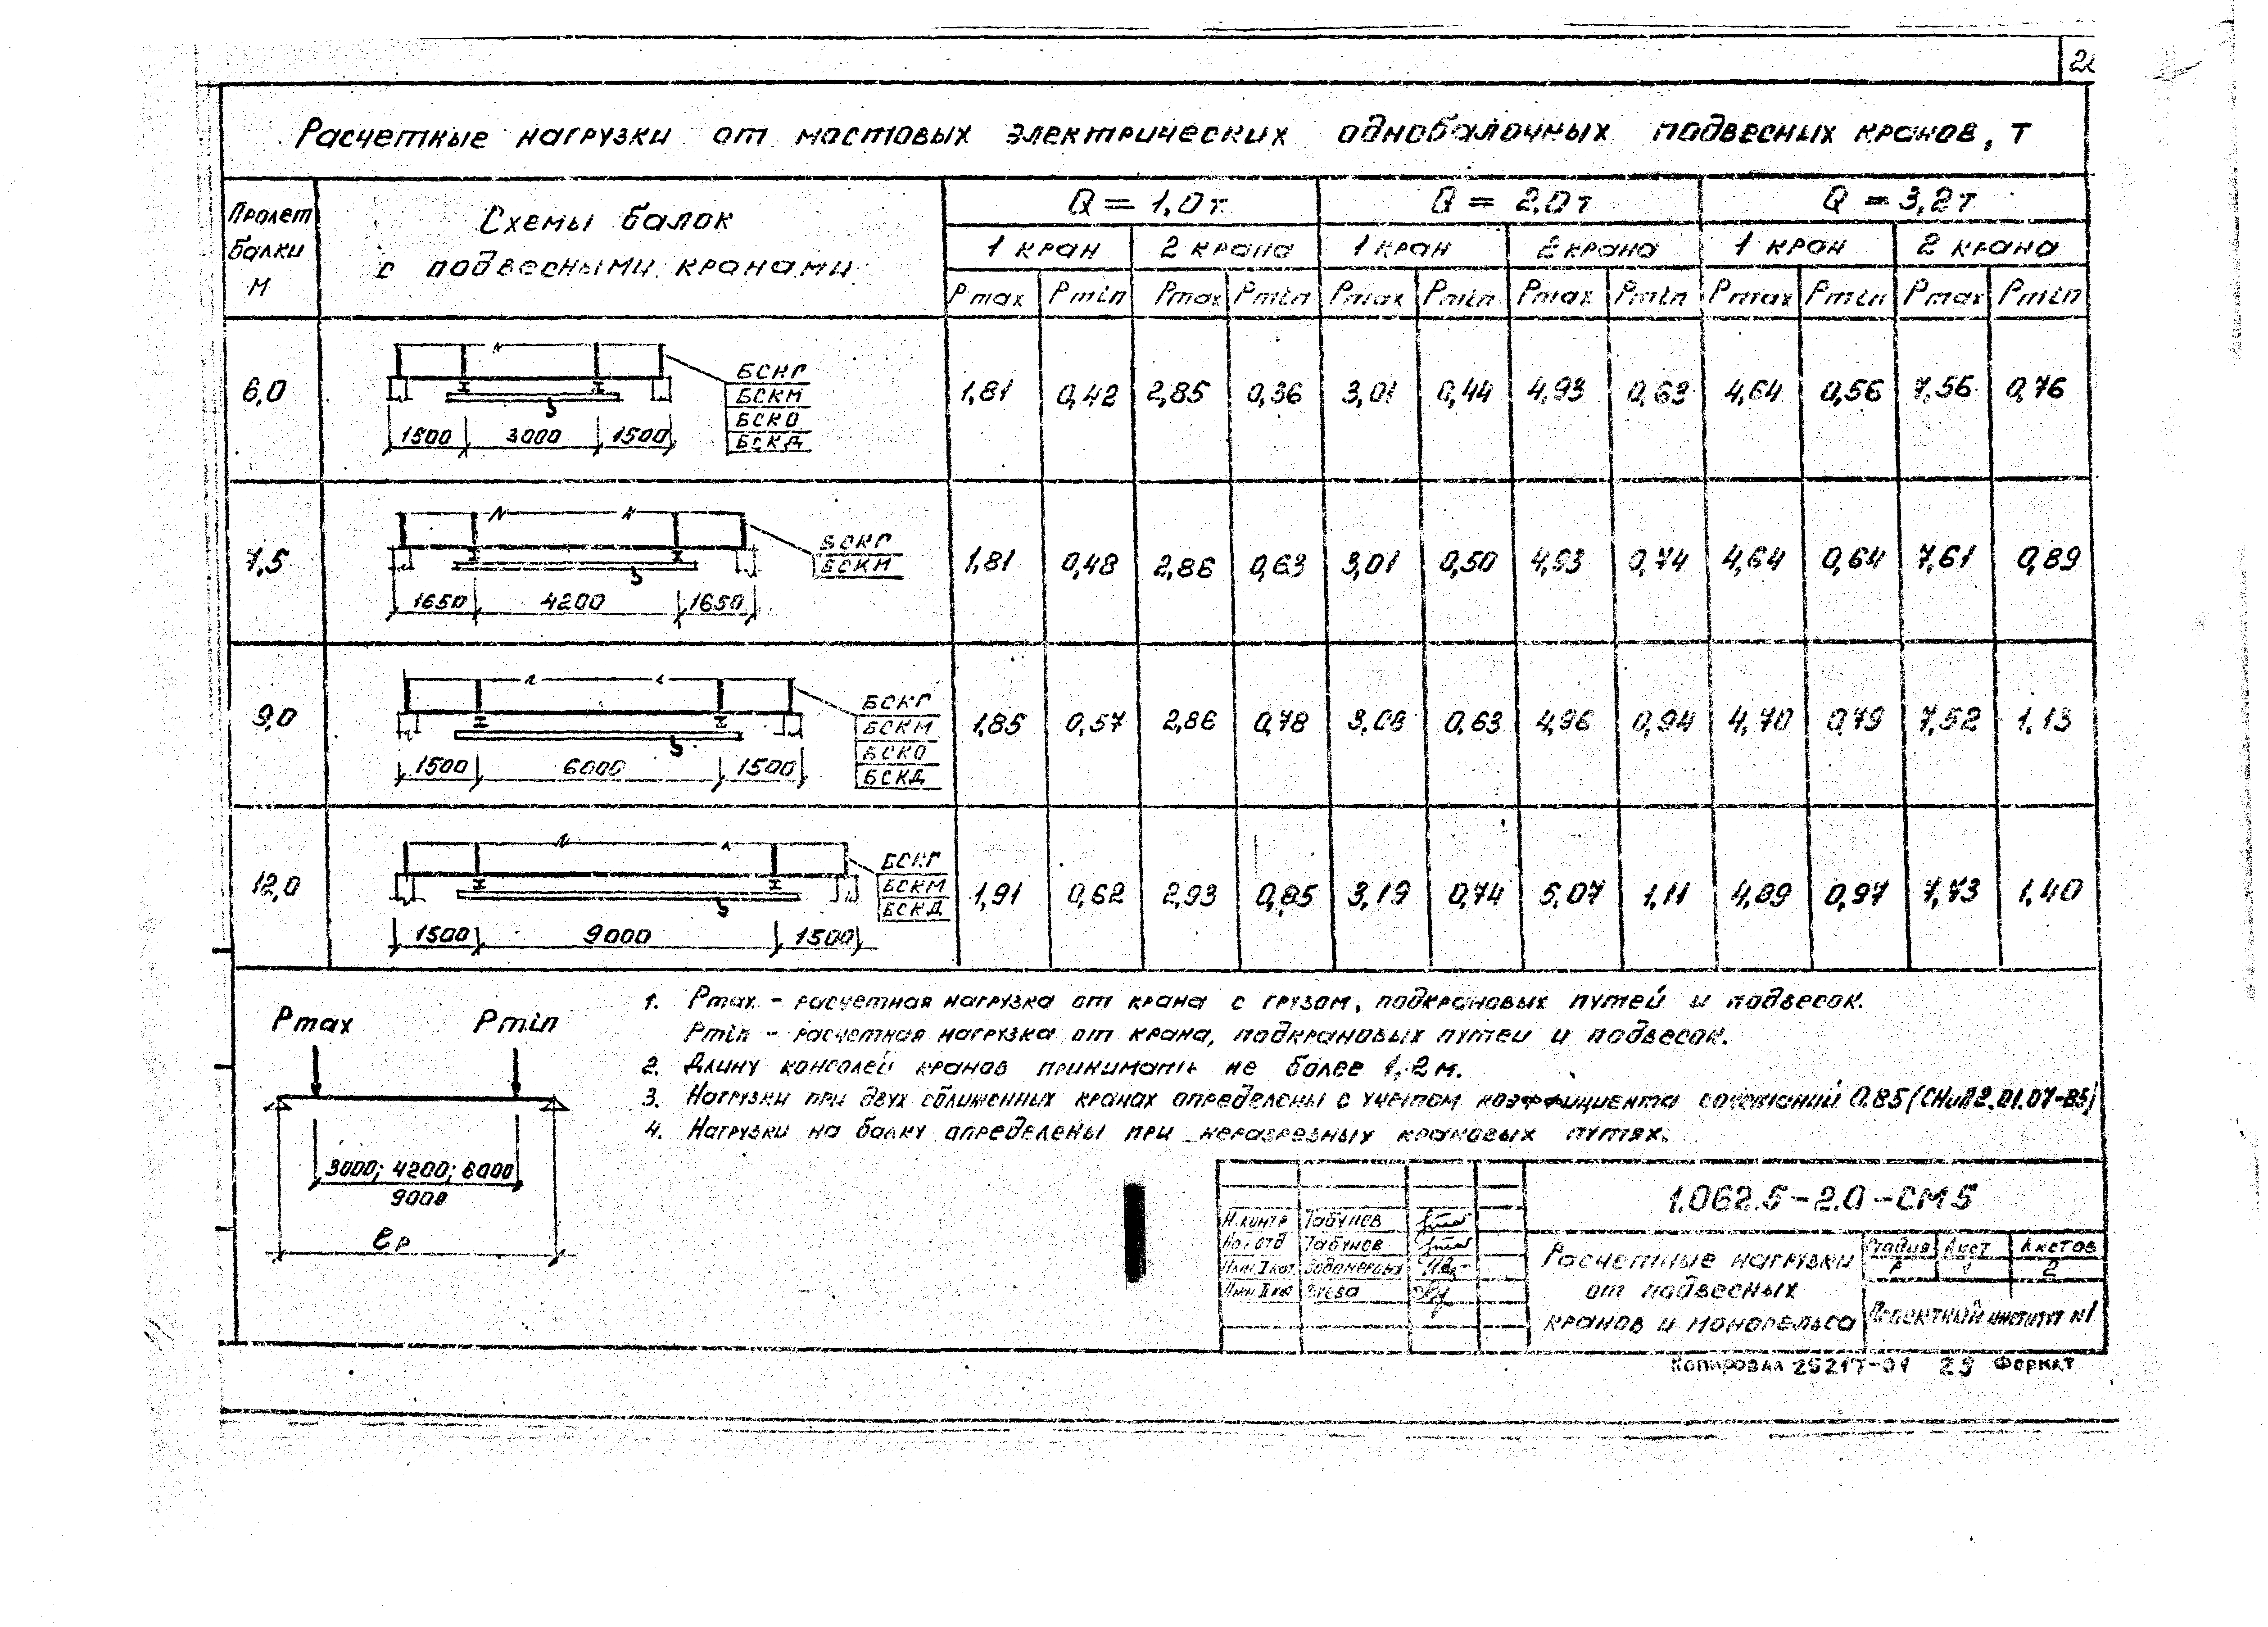 Расчетные нагрузки от мостовых электрических однобалочных подвесных кранов, т
Пролет балки м
Схемы балок
с подвесными кранами
Q = 1,0т Q = 2,0т Q = 3,2т
1 кран 2 крана 1 кран 2 крана 1 кран 2 крана
Pmax Pmin Pmax Pmin Pmax Pmin Pmax Pmin Pmax Pmin Pmax Pmin
6,0
БСКГ
БСКМ
БСКО
БСКД
1500 3000 1500
1,81 0,42 2,85 0,36 3,01 0,44 4,93 0,63 4,64 0,56 7,56 0,76
7,5
БСКГ
БСКМ
1650 4200 1650
1,81 0,48 2,86 0,63 3,01 0,50 4,93 0,74 4,64 0,64 7,61 0,89
9,0
БСКГ
БСКМ
БСКО
БСКД
1500 6000 1500
1,85 0,57 2,86 0,78 3,08 0,63 4,96 0,94 4,70 0,79 7,52 1,13
12,0
БСКГ
БСКМ
БСКД
1500 9000 1500
1,91 0,62 2,93 0,85 3,19 0,74 5,07 1,11 4,89 0,97 7,73 1,40
Pmax Pmin
3000; 4200; 6000
9000
ℓр
1. Pmax - расчетная нагрузка от крана с грузом, подкрановых путей и подвесок.
Pmin - расчетная нагрузка от крана, подкрановых путей и подвесок.
2. Длину консолей кранов принимать не более 1,2 м.
3. Нагрузки при двух сближенных кранах определены с учетом коэффициента сочетаний 0.85 (СНиП 2.01.07-85)
4. Нагрузки на балку определены при неразрезных крановых путях.
1.062.5-2.0-СМ5
Н.контр Табунов
Нач.отд Табунов
Расчетные нагрузки
от подвесных
кранов и монорельса
Стадия Лист Листов
Р 1 2
Проектный институт №1
Копировал 25217-01 29 Формат